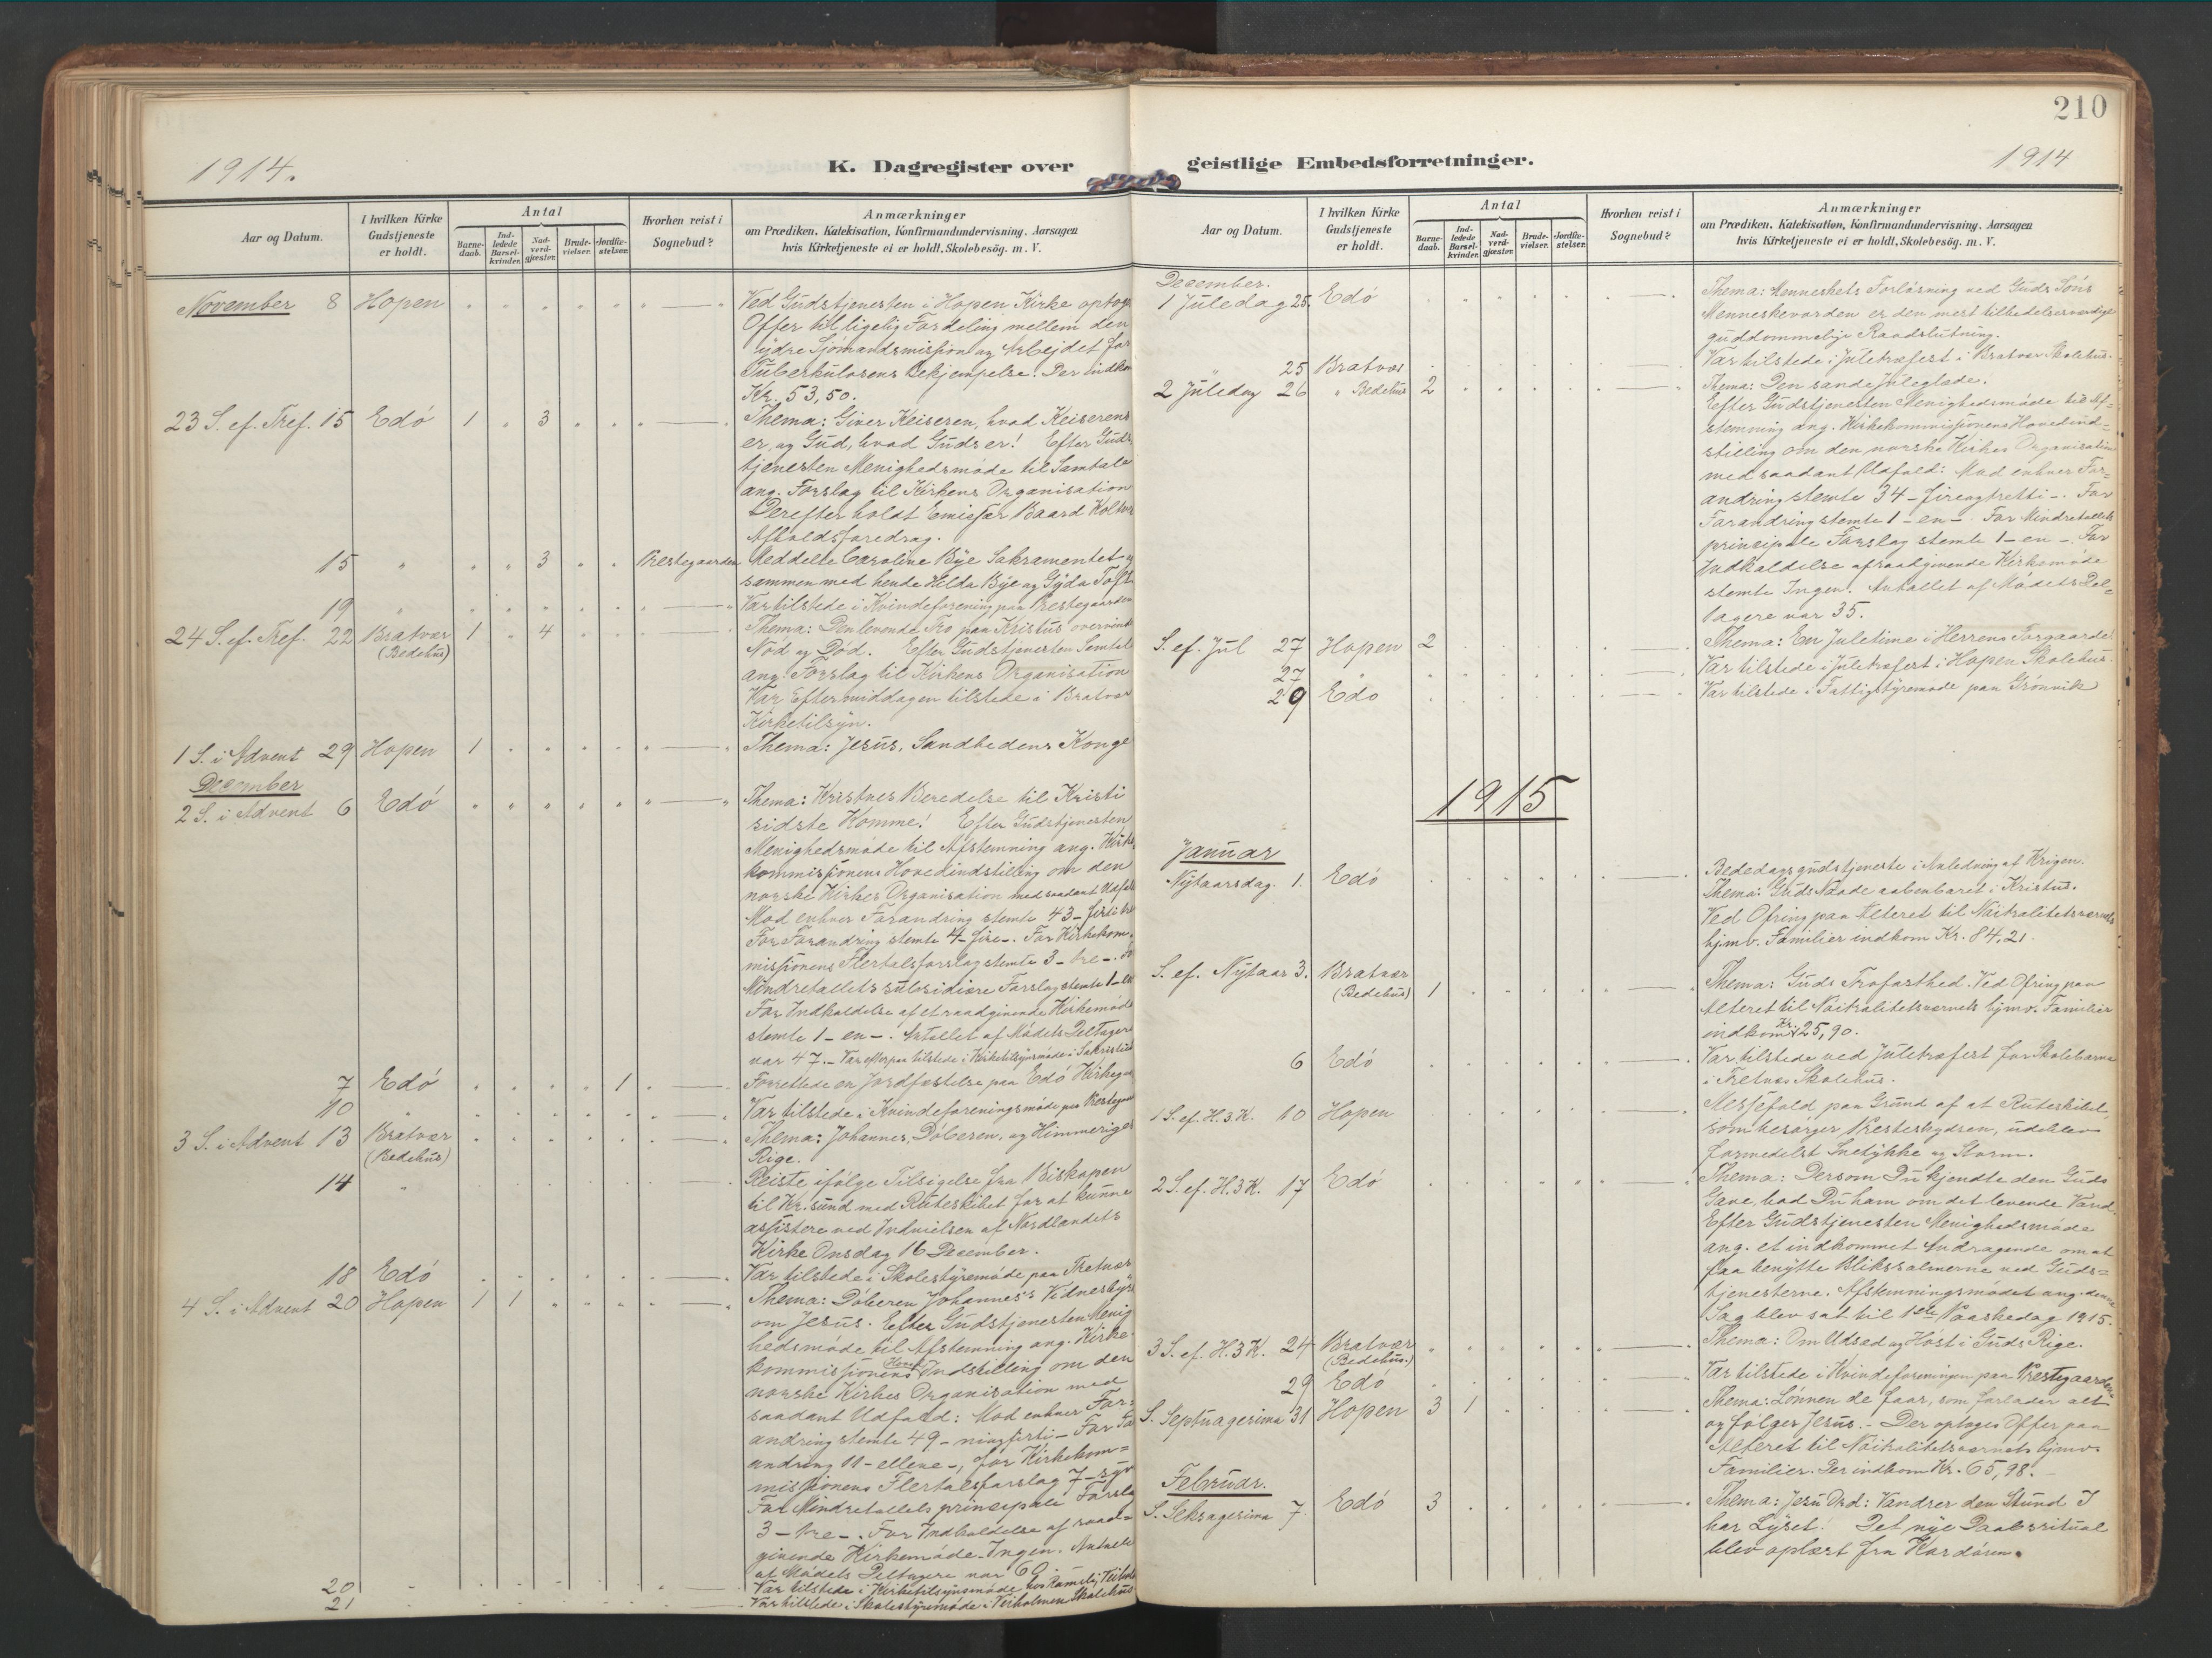 210
1914.
K. Dagregister over
geistlige Embedsforretninger.
1914
Aar og Datum.
I hvilken Kirke Gudstjeneste er holdt.
Antal
Barne-daab.
Ind-ledede Barsel-kvinder.
Nad-verd-gjæster.
Brude-vielser.
Jordfæ-stelser.
Hvorhen reist i Sognebud?
Anmærkninger
om Prædiken. Katekisation, Konfirmandundervisning. Aarsagen
hvis Kirketjeneste ei er holdt. Skolebesög. m. V.
November 8 Hopen Ved Gudstjenesten i Hopen Kirke optoges
Offer til ligelig Fordeling mellem den
ydre Sjömandsmission og Arbejdet for
Tuberkulosens Bekjæmpelse. Der indkom
Kr. 53,50.
23 S. ef. Tref. 15 Edö 1 3 Thema: Giver Keiseren, hvad Keiserens
er, og Gud, hvad Guds er! Efter Guds
tjenesten Menighedsmöde til Samtale
ang. Forslag til Kirkens Organisation
Derefter holdt Emissær Baard
Afholdsforedrag.
15 " 3 Prestegaarden Meddelte Caroline Bye Sakramentet og
sammen med hende Hilda Bye og Gyda Toft
19 " Var tilstede i Kvindeforening paa Prestegaarden
24 S. ef. Tref. 22 Bratvær (Bedehus) 1 4 Thema: Den levende Tro paa Kristus overvinder
Nöd og Död. Efter Gudstjenesten Samtale
ang. Forslag til Kirkens Organisation
Var Eftermiddagen tilstede i Bratvær
Kirketilsyn.
1 S. i Advent 29 Hopen 1 Thema: Jesus, Sandhedens Konge
December
2 S. i Advent 6 Edö Thema: Kristnes Beredelse til Kristi
sidste Komme! Efter Gudstjenesten
Menighedsmöde til Afstemning ang. Kirke
kommissionens Hovedindstilling om den
norske Kirkes Organisation med saadant Udfald
Mod enhver Forandring stemte 43 - firti tre
For Forandring stemte 4 - fire -. For Kirkekom-
missionens Flertalsforslag stemte 3 - tre -. For
Mindretallets subsidiære Forslag stemte 1 - en
For Indkaldelse af et raadgivende Kirkemöde
stemte 1 - en -. Antallet af Mödets Deltagere
var 47. - Var efterpaa tilstede i Kirketilsynsmöde i Sakristiet
7 Edö 1 Forrettede en Jordfæstelse paa Edö Kirkegaard
10 " Var tilstede i Kvindeforeningsmöde paa Prestegaard
3 S. i Advent 13 Bratvær (Bedehus) Thema: Johannes, Döberen, og Himmeriges
Rige.
14 " Reiste ifölge Tilsigelse fra Biskopen
til Kr.sund med Ruteskibet for at kunne
assistere ved Indvielsen af Nordlandets
Kirke Onsdag 16 December.
18 Edö Var tilstede i Skolestyremöde paa Tretnær
4 S. i Advent 20 Hopen 1 1 Thema: Döberen Johannes's Vidnesbyrd
om Jesus. Efter Gudstjenesten Menig
hedsmöde til Afstemning ang. Kirke-
kommissionens Hoved Indstilling om den
norske Kirkes Organisation med
saadant Udfald: Mod enhver For-
andring stemte 49 - niogfirti - For For
andring 11 - elleve -, for Kirkekom=
missionens Flertalsforslag 7 - syv
For Mindretallets principale Forslag
3 - tre -. For Indkaldelse af raad=
givende Kirkemöde - Ingen. Antallet
af Mödets Deltagere var 60.
20 Var tilstede i Kirketilsynsmöde hos
21 Var tilstede i Skolestyremöde i Veiholmen Skolehus
Aar og Datum.
I hvilken Kirke Gudstjeneste er holdt.
Antal
Barne-daab.
Ind-ledede Barsel-kvinder.
Nad-verd-gjæster.
Brude-vielser.
Jordfæ-stelser.
Hvorhen reist i Sognebud?
Anmærkninger
om Prædiken. Katekisation, Konfirmandundervisning. Aarsagen
hvis Kirketjeneste ei er holdt. Skolebesög. m. V.
December.
1 Juledag 25. Edö Thema: Menneskets Forlösning ved Guds Söns
Menneskevorden er den mest tilbedelsesværdige
guddommelige Raadslutning.
25 Bratvær Var tilstede i Juletræfest i Bratvær Skolehus.
2 Juledag 26 " Bedehus 2 Thema: Den sande Juleglæde.
Efter Gudstjenesten Menighedsmöde til Af=
stemning ang. Kirkekommissionens Hovedind=
stilling om den norske Kirkes Organisation
med saadant Udfald: Mod enhver For=
andring stemte 34 - fireogtretti -. For
Forandring stemte 1 - en -. For Mindretallets
principale Forslag stemte 1 - en -. For
Indkaldelse af raadgivende Kirkemöde
stemte Ingen. Antallet af Mödets Del=
tagere var 35.
S. ef. Jul 27 Hopen 2 Thema: En Juletime i Herrens Forgaarde
27 " Var tilstede i Juletræfest i Hopen Skolehus.
29 Edö Var tilstede i Fattigstyremöde paa Grönvik
1915
Januar
Nytaarsdag. 1. Edö Bededagsgudstjeneste i Anledning af Krigen.
Thema: Guds Naade aabenbaret i Kristus.
Ved Ofring paa Alteret til Nöitralitetsværnets
hjmv. Familier indkom Kr. 84,21.
S. ef. Nytaar 3. Bratvær (Bedehus) 1 Thema: Guds Trofasthed. Ved Ofring paa
Alteret til Nöitralitetsværnets hjmv. Familier
indkom Kr. 25,90.
6 Edö Var tilstede ved Juletræfest for Skolebarna
i Tretnæs Skolehus.
1 S. ef. H.3.K. 10 Hopen Messefald paa Grund af at Ruteskibet,
som besörger Presteskydsen, udeblev
formedelst Snetykke og Storm.
2 S. ef. H.3K. 17 Edö Thema: Dersom Du kjendte den Guds
Gave, bad Du ham om det levende Vand.
Efter Gudstjenesten Menighedsmöde
ang. et indkommet Andragende om at
faa benytte Blikssalmerne ved Guds=
tjenesterne. Afstemningsmödet ang. denne
Sag blev sat til 1ste Paaskedag 1915.
3 S. ef. H.3K. 24 Bratvær (Bedehus.) Thema: Om Udsæd og Höst i Guds Rige.
29 Edö Var tilstede i Kvindeforeningen paa Prestegaarden
S. Septuagesima 31 Hopen 3 1 Thema: Lönnen de faar, som forlader alt
og fölger Jesus. - Der optoges Offer paa
Alteret til Nöitralitetsværnets hjmv.
Familier. Der indkom Kr. 65,98. -
Februar.
S. Seksagesima 7. Edö 3 Thema: Jesu Ord: Vandrer den Stund I
har Lyset! Det nye Daabsritual
blev oplæst fra Kordören.